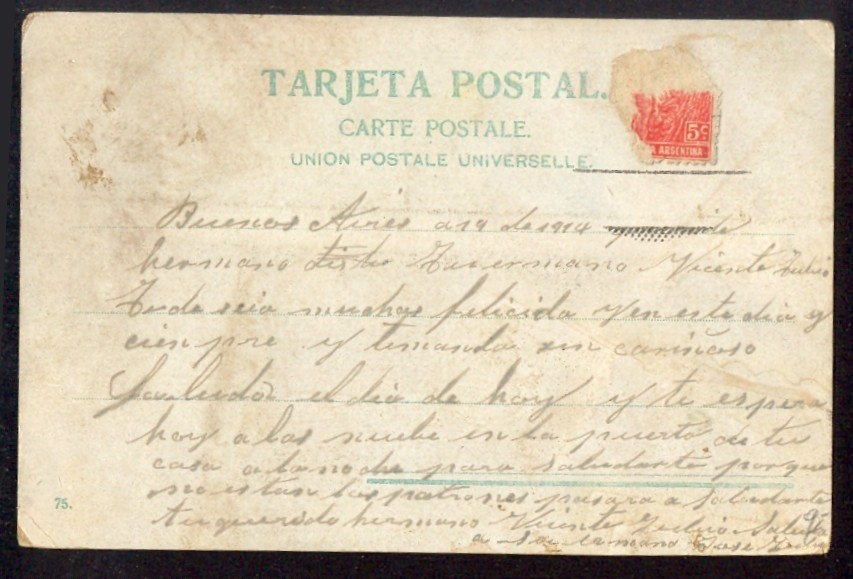 TARJETA POSTAL.
CARTE POSTALE.
UNION POSTALE UNIVERSELLE.
5c
A ARGENTINA
Buenos Aires a 19 de 1914
hermano tuermano Vicente
Te de seio muchas felicida y en este dia y
cien pre y temanda un cariñoso
Saludo el dia de hoy y te espera
hoy a las nuebe en la puerta de tu
casa a la noche para saludarte porque
no estan los patrones pasara a saludarte
tu querido hermano Vicente
a su ermano Jose
75.